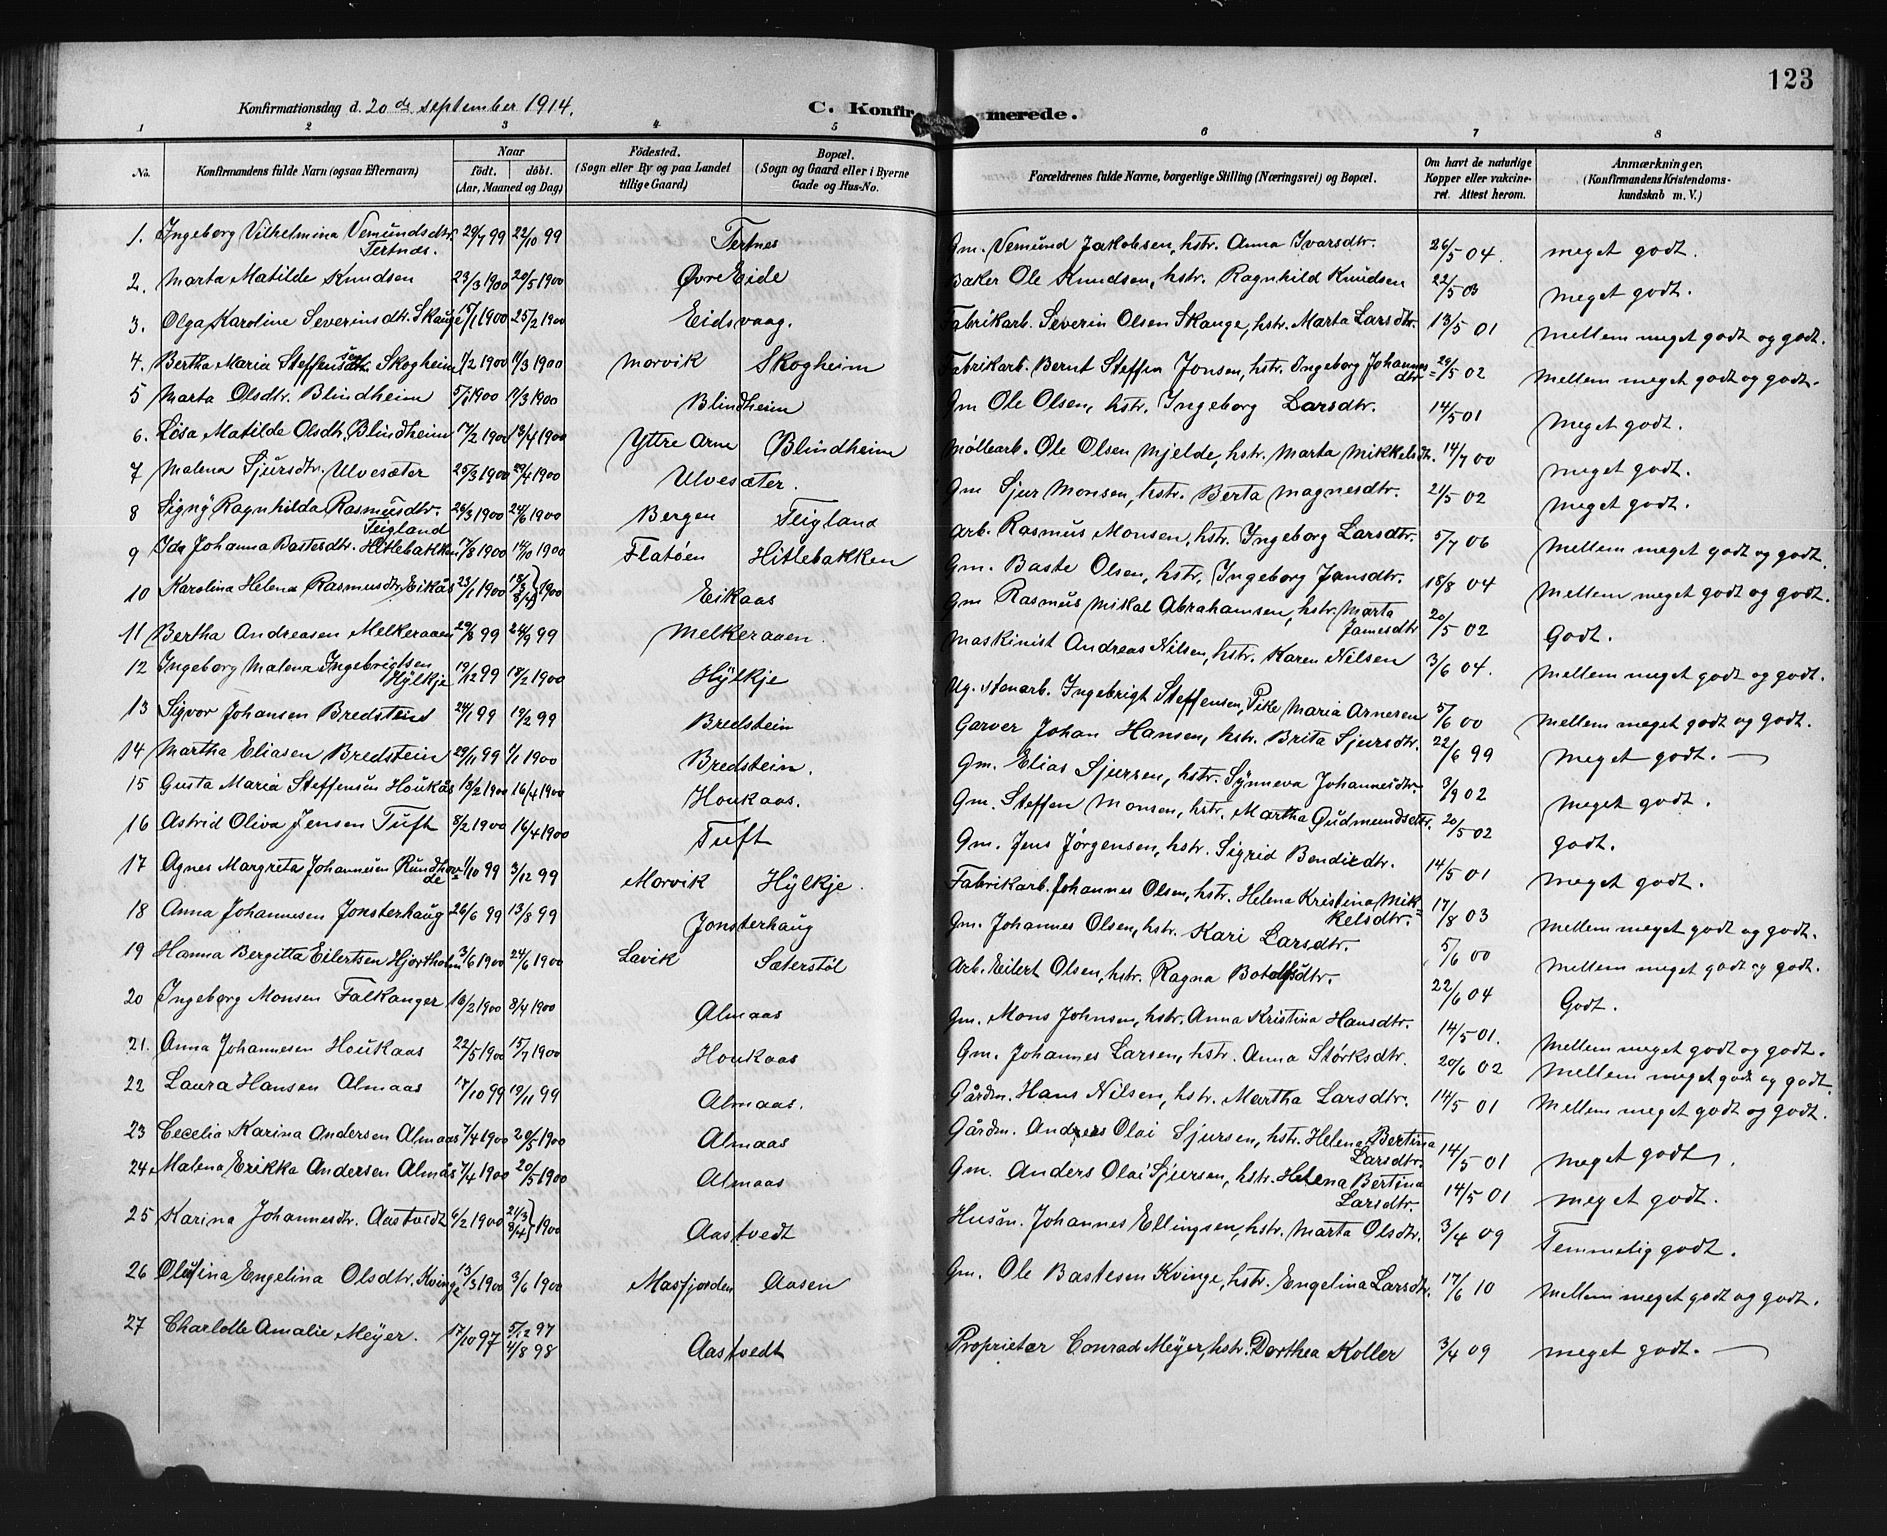 123
Konfirmationsdag d. 20de september 1914.
C. Konfir merede.
1 2 3 4 5 6 7 8
No. Konfirmandens fulde Navn (ogsaa Efternavn) Naar födt. döbt. (Aar, Maaned og Dag) Födested. (Sogn eller By og paa Landet tillige Gaard) Bopæl. (Sogn og Gaard eller i Byerne Gade og Hus-No. Forældrenes fulde Navne, borgerlige Stilling (Næringsvei) og Bopæl. Om havt de naturlige Kopper eller vakcineret. Attest herom. Anmærkninger, (Konfirmandens Kristendomskundskab m. V.)
1. Ingeborg Vilhelmina Vemundsdtr. Tertnæs. 29/7 99 22/10 99 Tertnes Gm. Vemund Jakobsen, hstr. Anna Ivarsdtr. 26/5 04. meget godt.
2. Marta Matilde Knudsen 23/3 1900 20/5 1900 Øvre Eide Baker Ole Knudsen, hstr. Ragnhild Knudsen 22/5 03 meget godt.
3. Olga Karoline Severinsdtr. Skauge 17/1 1900 25/2 1900 Eidsvaag. Fabrikarb. Severin Olsen Skauge, hstr. Marta Larsdtr. 13/5 01 mellem meget godt og godt.
4. Bertha Maria Steffens Skogheim 1/2 1900 11/3 1900 Morvik Skogheim Fabrikarb. Bernt Steffen Jonsen, hstr. Ingeborg Johannesdtr 29/5 02 Mellem meget godt og godt.
5 Marta Olsdtr. Blindheim 1900 11/3 1900 Blindheim Gm Ole Olsen, hstr. Ingeborg Larsdtr. 14/5 01 Meget godt.
6. Losa Matilde Olsdtr. Blindheim 17/2 1900 13/4 1900 Yttre Arne Blindheim Møllearb. Ole Olsen Mjelde, hstr. Marta Mikkelsdtr. 14/7 00 meget godt.
7 Malena Sjursdtr. Ulvesæter 25/3 1900 29/4 1900 Ulvesæter. Gm Sjur Monsen, hstr. Berta Magnesdtr. 21/5 02 meget godt.
8 Signy Ragnhilda Rasmusdtr. Teigland 28/3 1900 24/6 1900 Bergen Teigland Arb. Rasmus Monsen, hstr. Ingeborg Larsdtr. 5/7 06 mellem meget godt og godt.
9 Ida Johanna Bastesdtr. Hitlebakken 17/8 1900 14/10 1900 Flatøen Hitlebakken Gm. Baste Olsen, hstr. Ingeborg Jansdtr. 18/8 04 mellem meget godt og godt.
10 Karolina Helena Rasmusdtr Eikås 23/1 1900 18/3 8/4} 1900 Eikaas Gm Rasmus Mikal Abrahamsen, hstr. Marta Jamesdtr 20/5 02 Godt.
11 Bertha Andreasen Melkeraaen 29/8 99 24/9 99 Melkeraaen. Maskinist Andreas Nilsen, hstr. Karen Nilsen 3/6 04. mellem meget godt og godt.
12 Ingeborg Malena Ingebrigtsen Hÿlkje 19/12 99 18/2 1900 Hÿlkje Ug. stenarb. Ingebrigt Steffensen, Pike Maria Arnesen 5/6 00 Mellem meget godt og godt.
13 Sigvor Johansen Bredstein 24/1 99 19/2 99 Bredstein Garver Johan Hansen, hstr. Brita Sjursdtr. 22/6 99 meget godt.
14 Martha Eliasen Bredstein 29/11 99 1/1 1900 Bredstein. Gm. Elias Sjursen, hstr. Synneva Johannesdtr. 3/9 02 meget godt.
15 Gusta Maria Steffensen Houkås 13/2 1900 16/4 1900 Houkaas. Gm. Steffen Monsen, hstr. Martha Gudmundsdtr. 20/5 02 godt.
16 Astrid Oliva Jensen Tuft 8/2 1900 16/4 1900 Tuft Gm. Jens Jørgensen, hstr. Sigrid Bendicdtr. 14/5 01 meget godt.
17 Agnes Margreta Johannesen Rundhovde 1/10 99 3/12 99 Morvik Hÿlkje. Fabrikarb. Johannes Olsen, hstr. Helena Kristina Mikkelsdtr. 17/8 03 mellem meget godt og godt.
18 Anna Johannesen Jonsterhaug 26/6 99 13/8 99 Jonsterhaug Gm. Johannes Olsen, hstr. Kari Larsdtr. 5/6 00 mellem meget godt og godt.
19 Hanna Bergitta Eilertsen Hjortholm 3/6 1900 24/6 1900 Lavik Sæterstöl Arb. Eilert Olsen, hstr. Ragna Botolfsdtr. 22/6 04 Godt.
20 Ingeborg Monsen Falkanger 16/2 1900 8/4 1900 Almaas Gm. Mons Johnsen, hstr. Anna Kristina Hansdtr. 14/5 01. Mellem meget godt og godt.
21. Anna Johannesen Houkaas 22/5 1900 15/7 1900 Houkaas Gm. Johannes Larsen, hstr. Anna Størksdtr. 20/6 02 mellem meget godt og godt.
22 Laura Hansen Almaas 17/10 99 19/11 99 Almaas. Gårdm. Hans Nilsen, hstr. Martha Larsdtr. 14/5 01 Mellem meget godt og godt.
23 Cecelia Karina Andersen Almaas 7/4 1900 20/5 1900 Almaas Gårdm. Anders Olai Sjursen, hstr. Helena Bertina Larsdtr. 14/5 01 meget godt.
24 Malena Erikka Andersen Almås 7/4 1900 20/5 1900 Almaas Gm. Anders Olai Sjursen, hstr. Helena Bertina Larsdtr. 14/5 01 meget godt.
25 Karina Johannesdtr. Aastvedt 6/2 1900 21/3 8/4} 1900 Aastvedt Husm. Johannes Ellingsen, hstr. Marta Olsdtr. 3/4 09 Temmelig godt.
26 Olufina Engelina Olsdtr. Kvinge 13/3 1900 3/6 1900 Masfjorden Aasen Gm. Ole Bastesen Kvinge, hstr. Engelina Larsdtr. 17/6 10 mellem meget godt og godt.
27 Charlotte Amalie Meÿer. 17/10 97 5/12 97 4/8 98 Aastvedt Proprietær Conrad Meÿer, hstr. Dorthea Koller 3/4 09 meget godt.